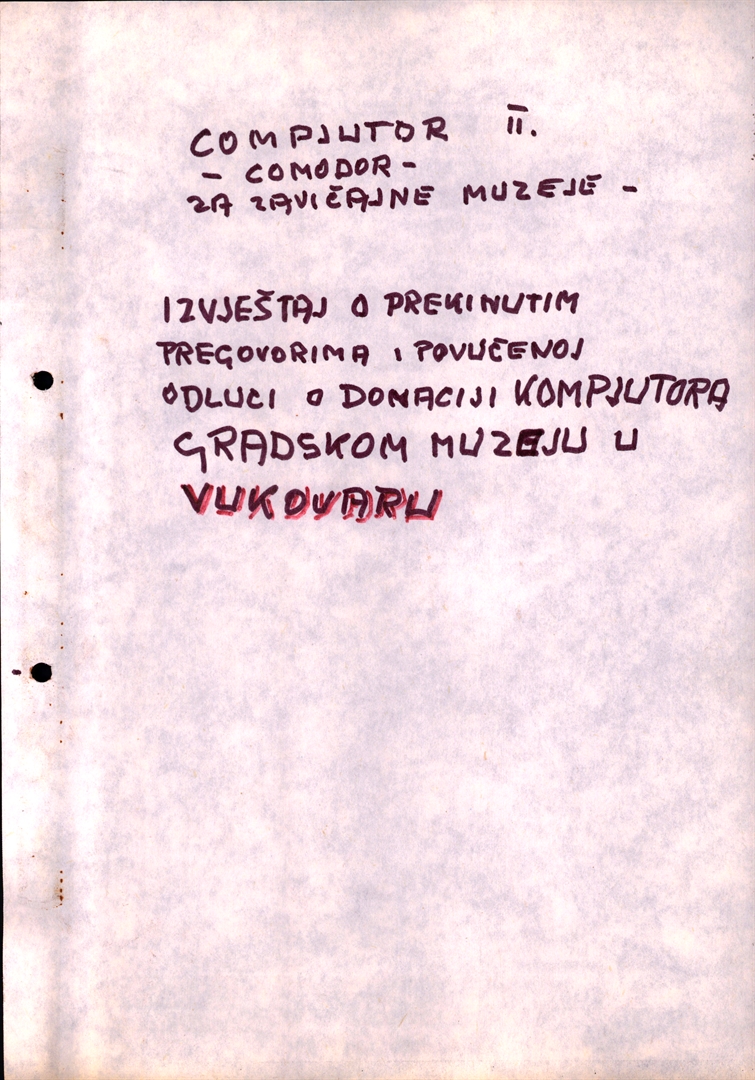 COMPJUTOR II.
- COMODOR -
ZA ZAVIČAJNE MUZEJE -
IZVJEŠTAJ O PREKINUTIM
PREGOVORIMA I POVUČENOJ
ODLUCI O DONACIJI KOMPJUTORA
GRADSKOM MUZEJU U
VUKOVARU